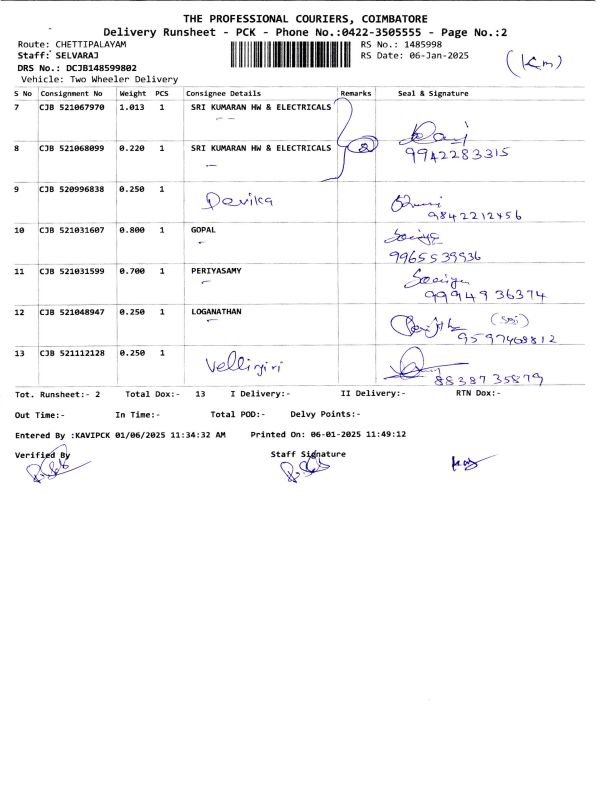 THE PROFESSIONAL COURIERS, COIMBATORE
Delivery Runsheet - PCK - Phone No.:0422-3505555 - Page No.:2
Route: CHETTIPALAYAM RS No.: 1485998
Staff: SELVARAJ RS Date: 06-Jan-2025
(Km)
DRS No.: DCJB148599802
Vehicle: Two Wheeler Delivery
S No Consignment No Weight PCS Consignee Details Remarks Seal & Signature
7 CJB 521067970 1.013 1 SRI KUMARAN HW & ELECTRICALS
8 CJB 521068099 0.220 1 SRI KUMARAN HW & ELECTRICALS 2 9942283315
9 CJB 520996838 0.250 1 Devika 9842212456
10 CJB 521031607 0.800 1 GOPAL 9965539936
11 CJB 521031599 0.700 1 PERIYASAMY 9994936374
12 CJB 521048947 0.250 1 LOGANATHAN 9597468812
13 CJB 521112128 0.250 1 Vellingiri 8838735879
Tot. Runsheet:- 2 Total Dox:- 13 I Delivery:- II Delivery:- RTN Dox:-
Out Time:- In Time:- Total POD:- Delvy Points:-
Entered By :KAVIPCK 01/06/2025 11:34:32 AM Printed On: 06-01-2025 11:49:12
Verified By Staff Signature